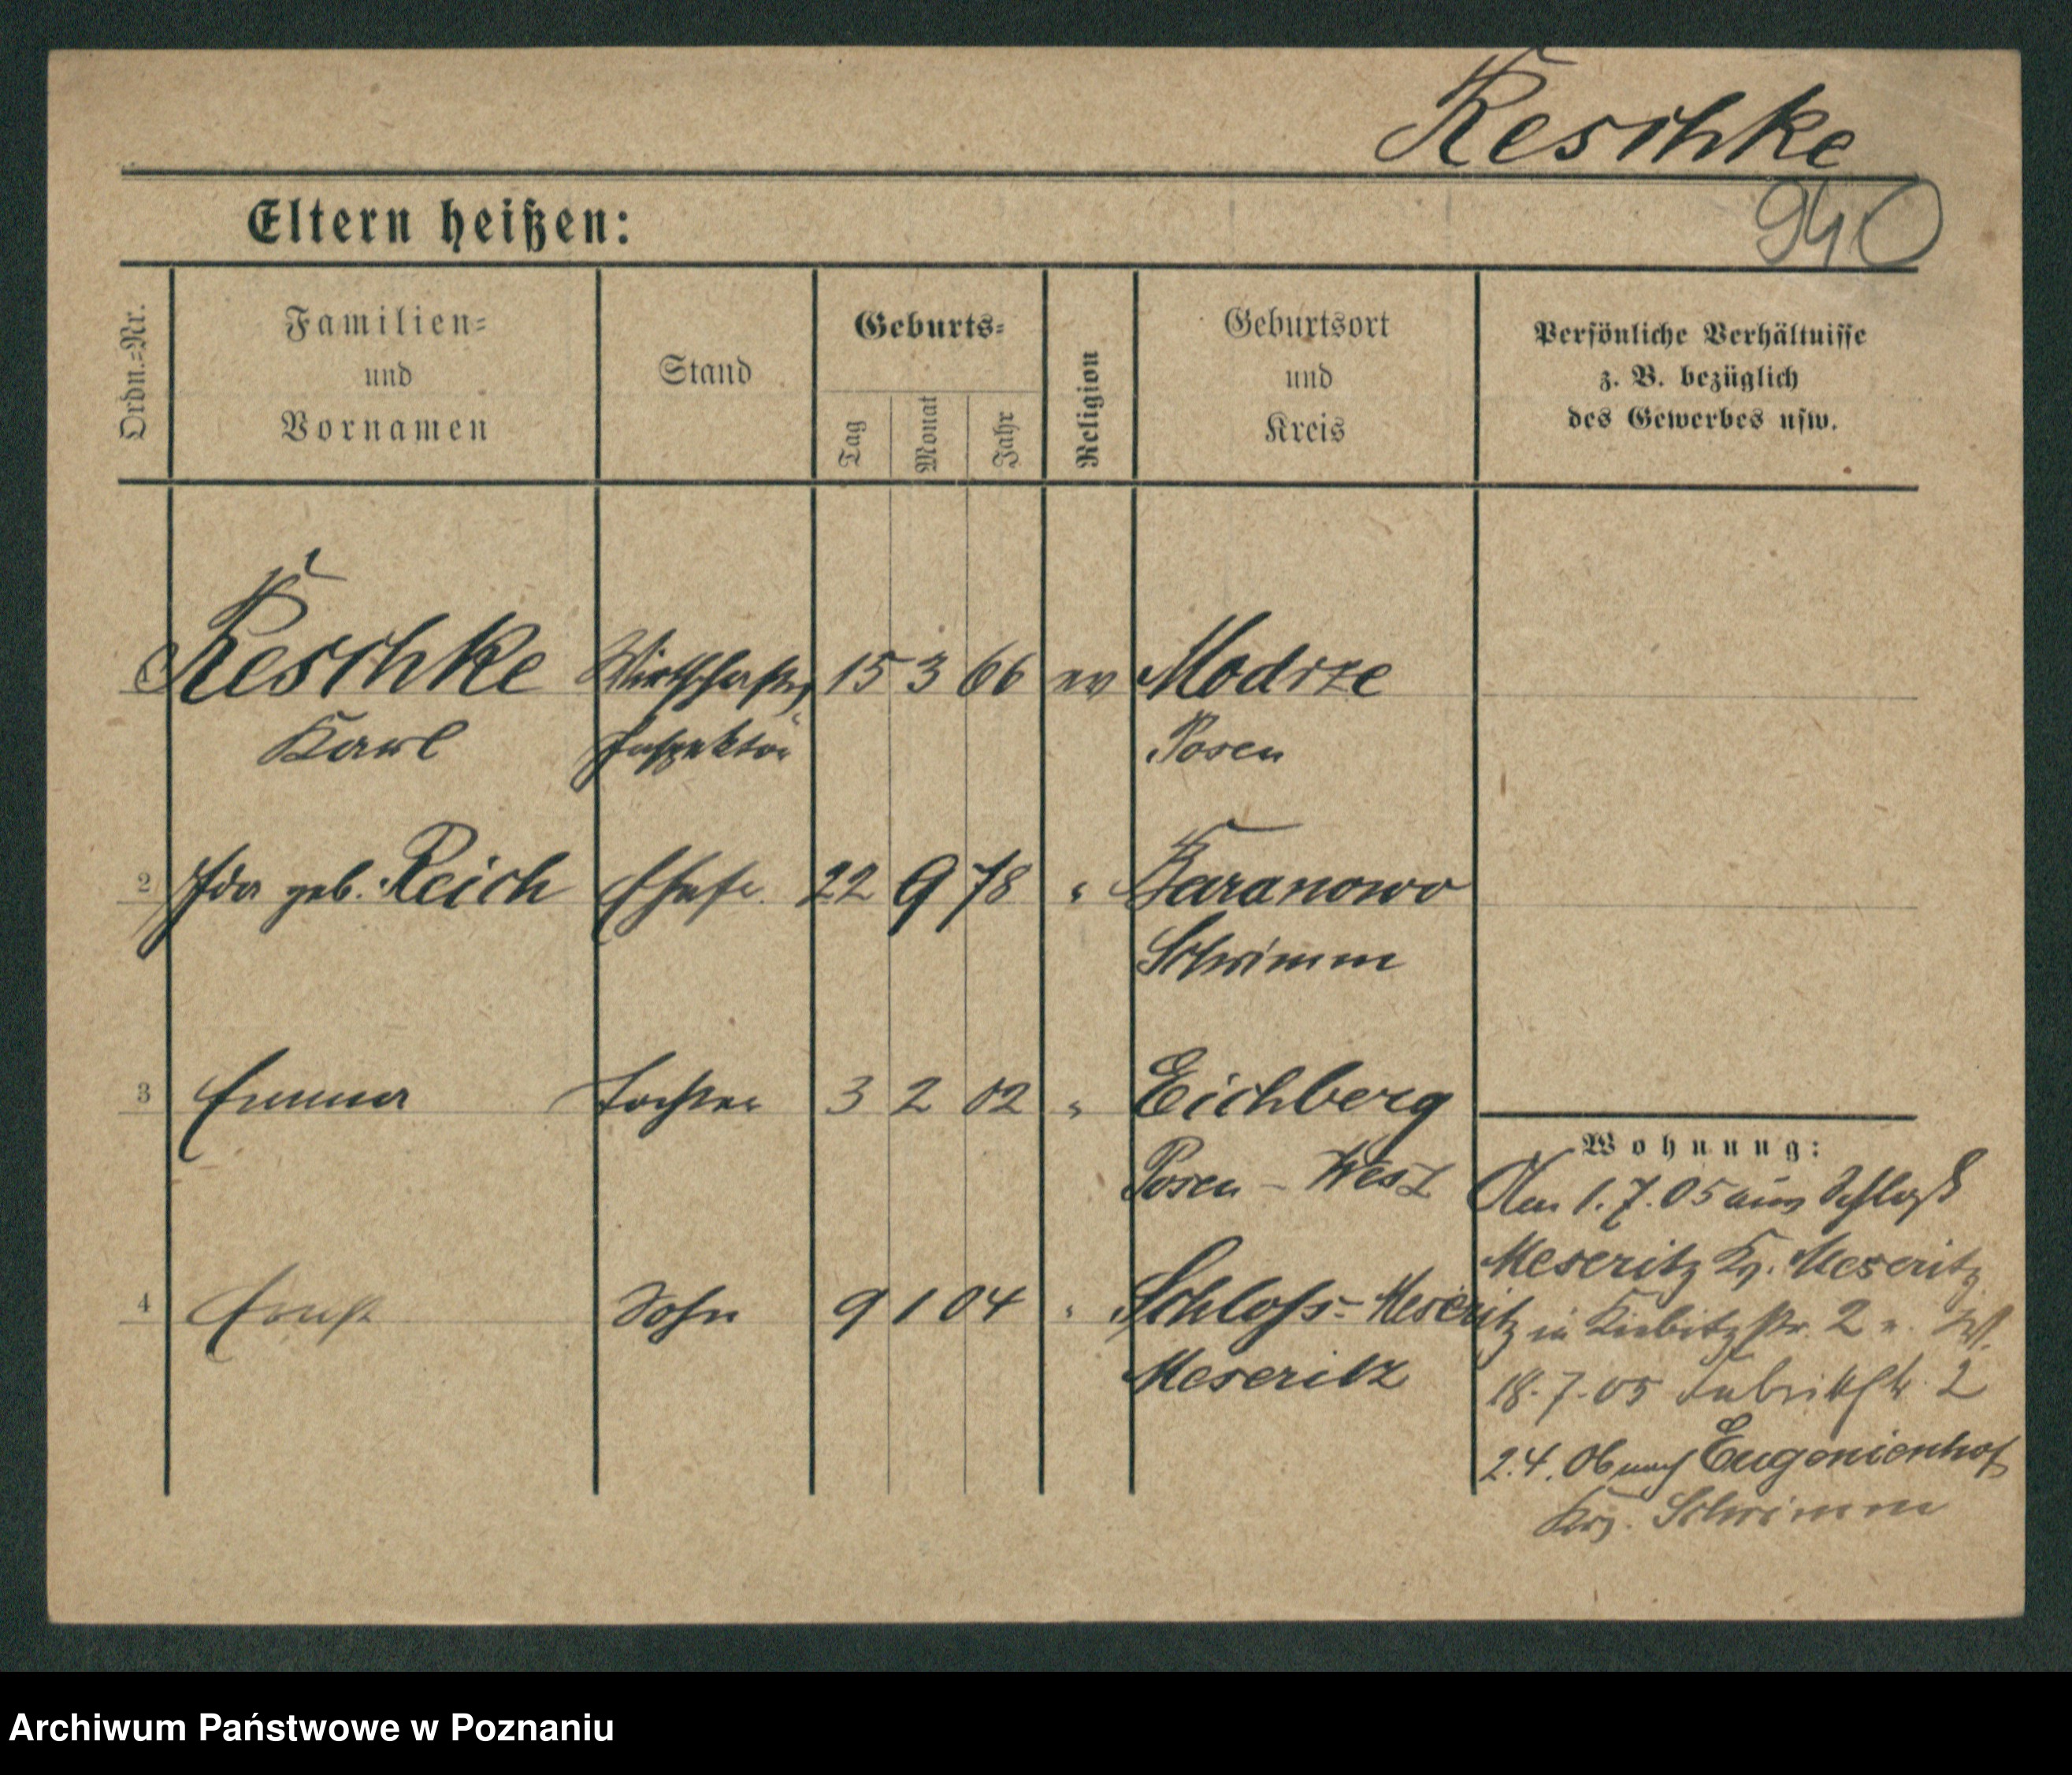 Reschke
940
Eltern heißen:
Ordn.-Nr.
Familien-
und
Vornamen
Stand
Geburts-
Tag
Monat
Jahr
Religion
Geburtsort
und
Kreis
Persönliche Verhältnisse
z. B. bezüglich
des Gewerbes usw.
Reschke Wirthschafts 15 3 66 ev Modrze
Karl Inspektor Posen
2 Ida geb. Reich Ehefr. 22 9 78 " Baranowo
Schrimm
3 Emma Tochter 3 2 02 " Eichberg
Posen - West
4 Ernst Sohn 9 1 04 " Schloss-Meseritz
Meseritz
Wohnung:
Am 1.7.05 aus Schloß
Meseritz Kr. Meseritz
in Kiebitzstr. 2
18.7.05 Fabrikstr. 2
2.4.06 nach Eugenienhof
Krs. Schrimm
Archiwum Państwowe w Poznaniu